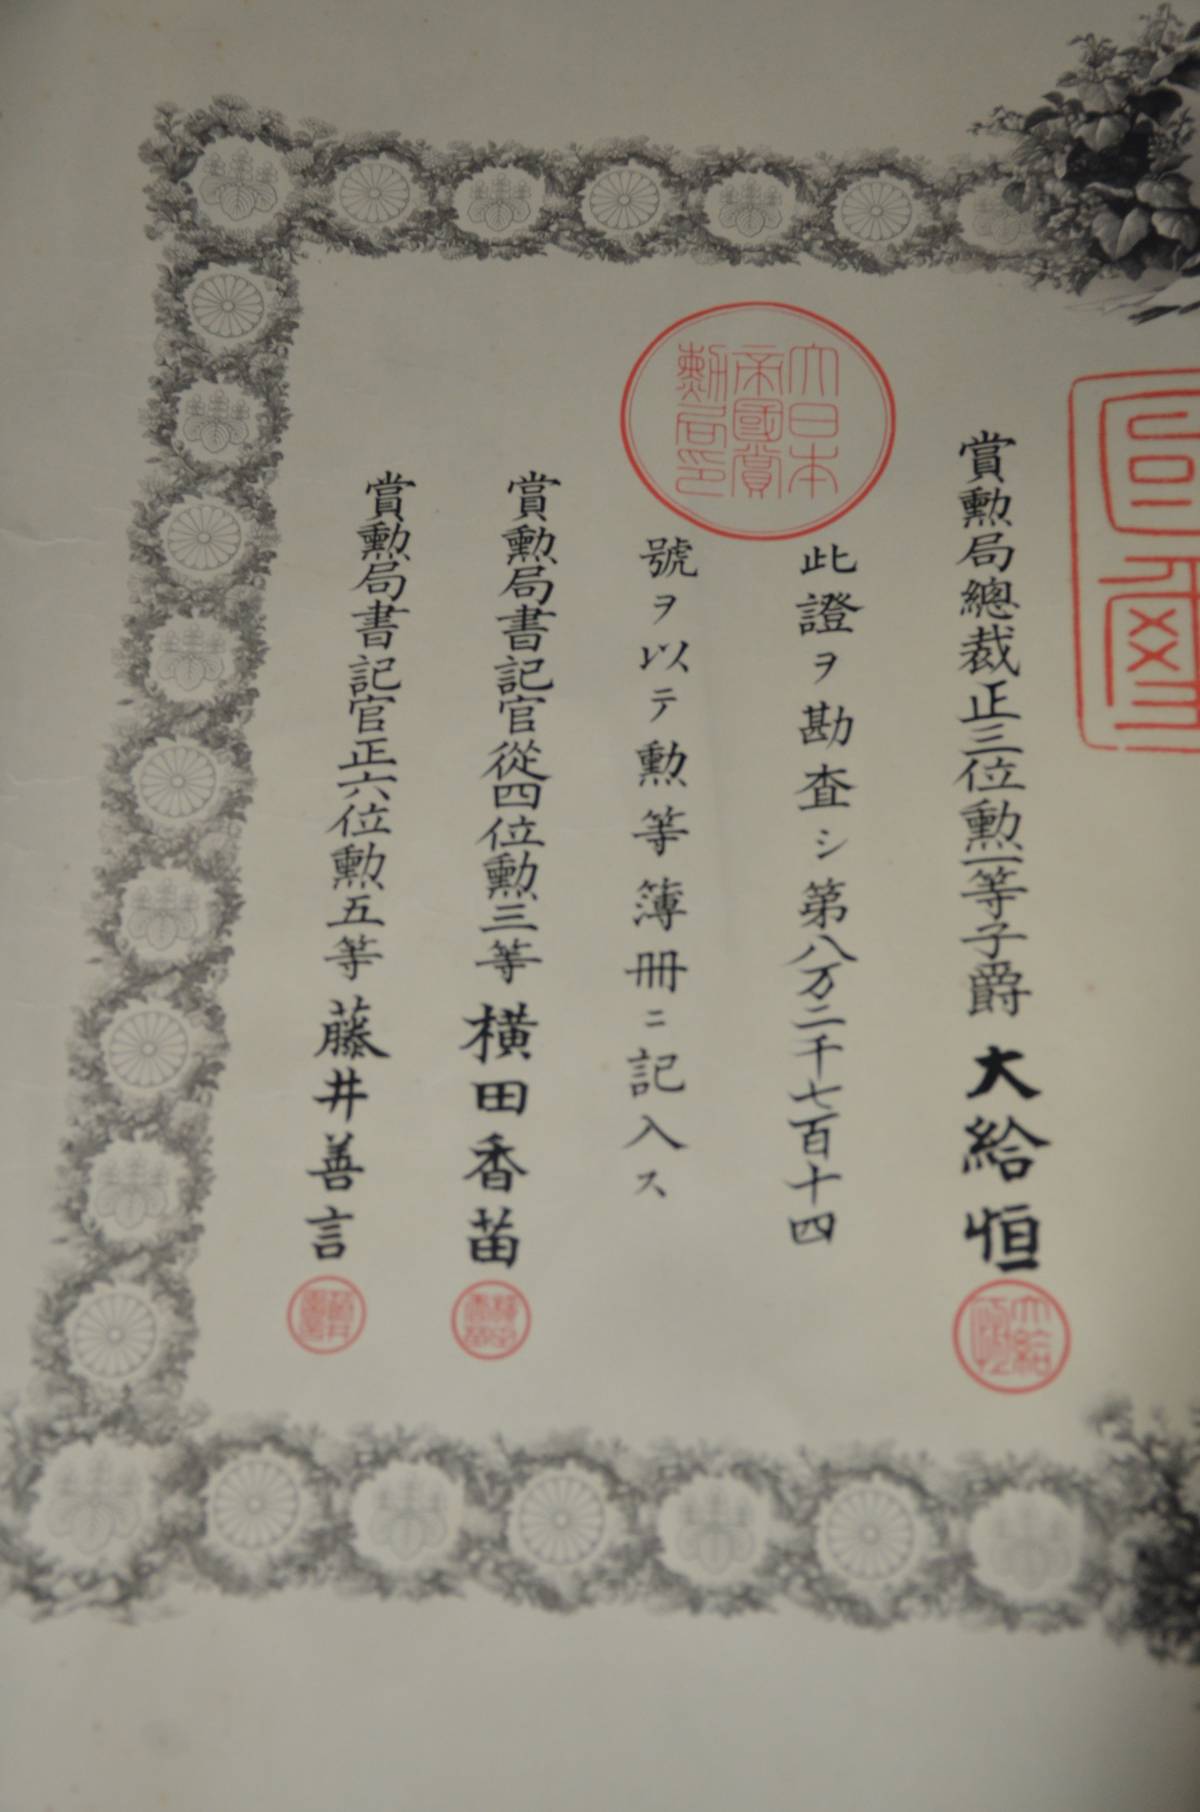 賞勲局總裁正三位勲一等子爵大給恒
此證ヲ勘査シ第八万二千七百十四
號ヲ以テ勲等簿冊ニ記入ス
賞勲局書記官從四位勲三等横田香苗
賞勲局書記官正六位勲五等藤井善言
大日本
帝國賞
勲局印